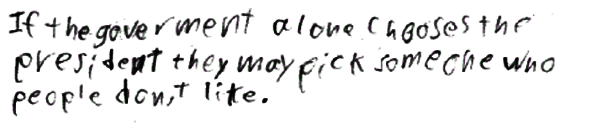 If the goverment alone chooses the
president they may pick someone who
people don,t like.